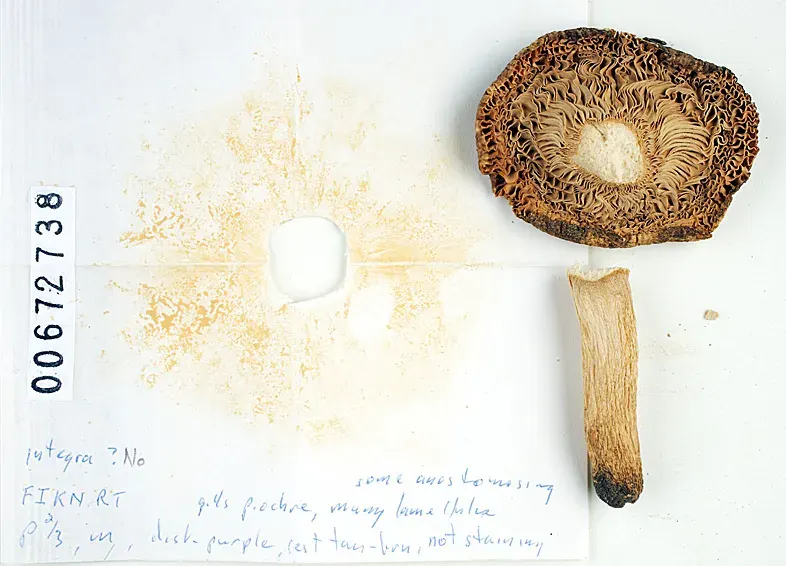 00672738
integra ? No
some anastomosing
FIKN.RT
gills p. ochre, many lamellulae
p 2/3, m, disk purple, rest tan-brn, not staining